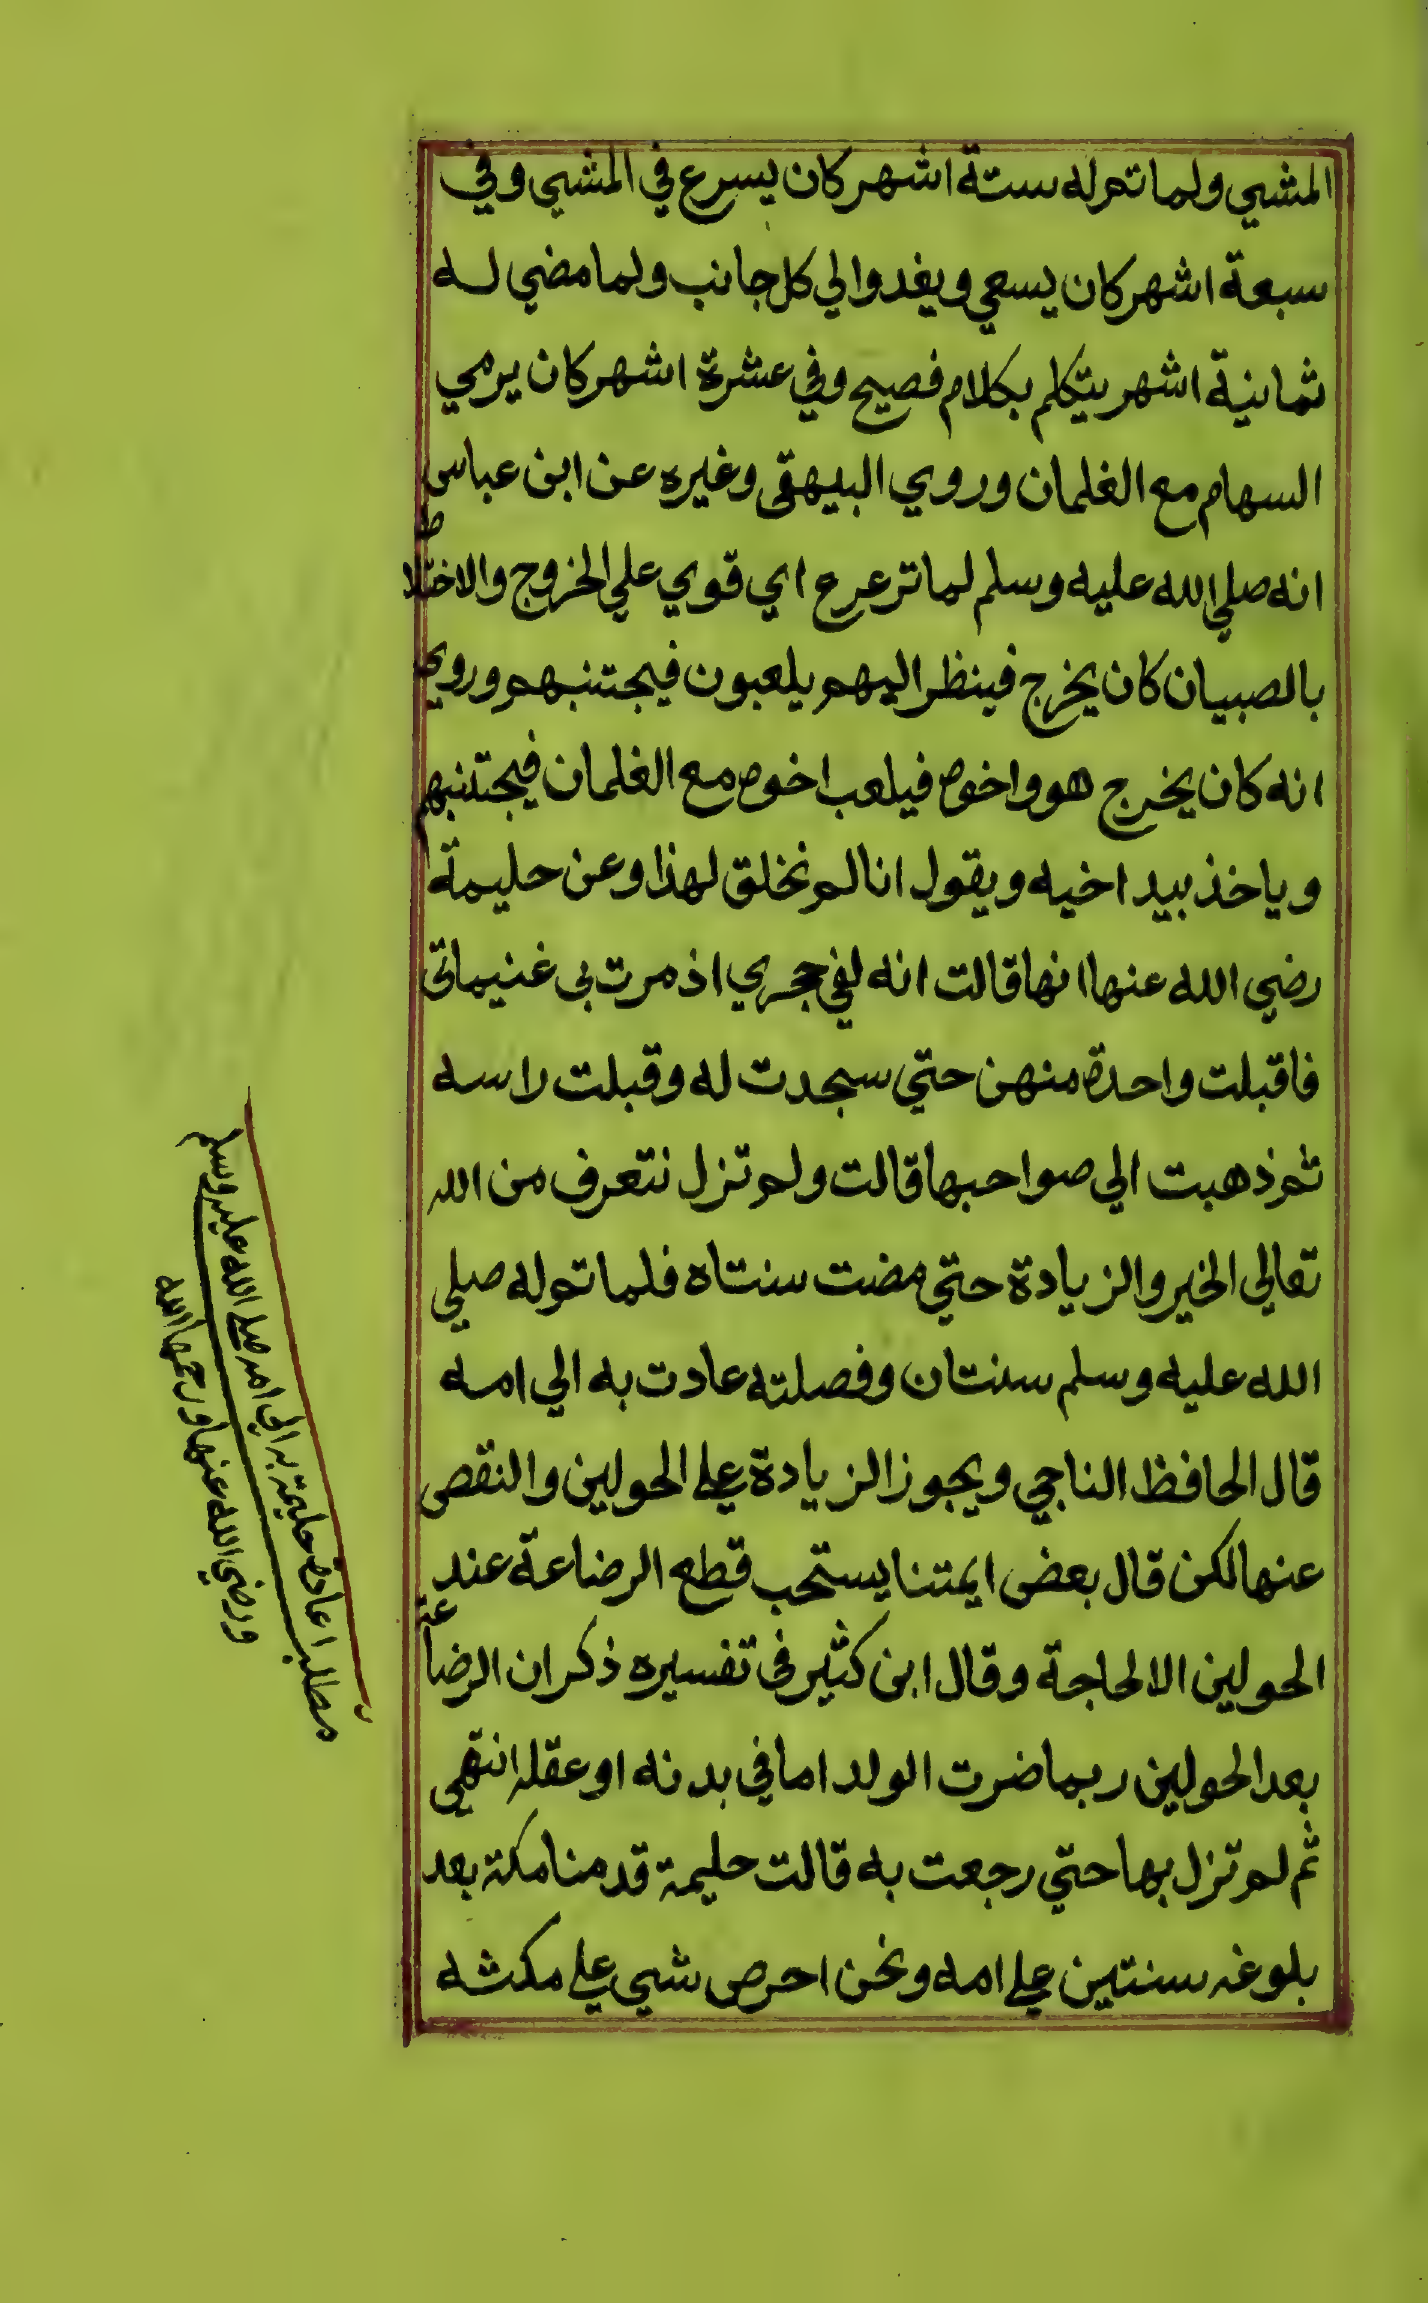 المشي ولما تم له ستة اشهر كان يسرع في المشي وفي
سبعة اشهر كان يسعي ويغدوالي كل جانب ولما مضي له
ثمانية اشهر يتكلم بكلام فصيح وفي عشرة اشهر كان يرمي
السهام مع الغلمان وروي البيهقي وغيره عن ابن عباس
انه صلي الله عليه وسلم لما ترعرع اي قوي علي الخروج والاختلاط
بالصبيان كان يخرج فينظر اليهم يلعبون فيجتنبهم وروي
انه كان يخرج هو واخوه فيلعب اخوه مع الغلمان فيجتنبهم
وياخذ بيد اخيه ويقول انا لم نخلق لهذا وعن حليمة
رضي الله عنها انها قالت انه لفي حجري اذ مرت بي غنيماتي
فاقبلت واحدة منهن حتي سجدت له وقبلت راسه
ثم ذهبت الي صواحبها قالت ولم تزل نتعرف من الله
تعالي الخير والزيادة حتي مضت سنتاه فلما تم له صلي
الله عليه وسلم سنتان وفصلته عادت به الي امه
قال الحافظ الناجي ويجوز الزيادة علي الحولين والنقص
عنها لكن قال بعض ايمتنا يستحب قطع الرضاعة عند
الحولين الا لحاجة وقال ابن كثير في تفسيره ذكر ان الرضاعة
بعد الحولين ربما ضرت الولد اما في بدنه او عقله انتهي
ثم لم تزل بها حتي رجعت به قالت حليمة قدمنا مكة بعد
بلوغه سنتين علي امه ونحن احرص شي علي مكثه
مطلب اعادة حليمة به الي امه صلي الله عليه وسلم
ورضي الله عنها ورحمها الله